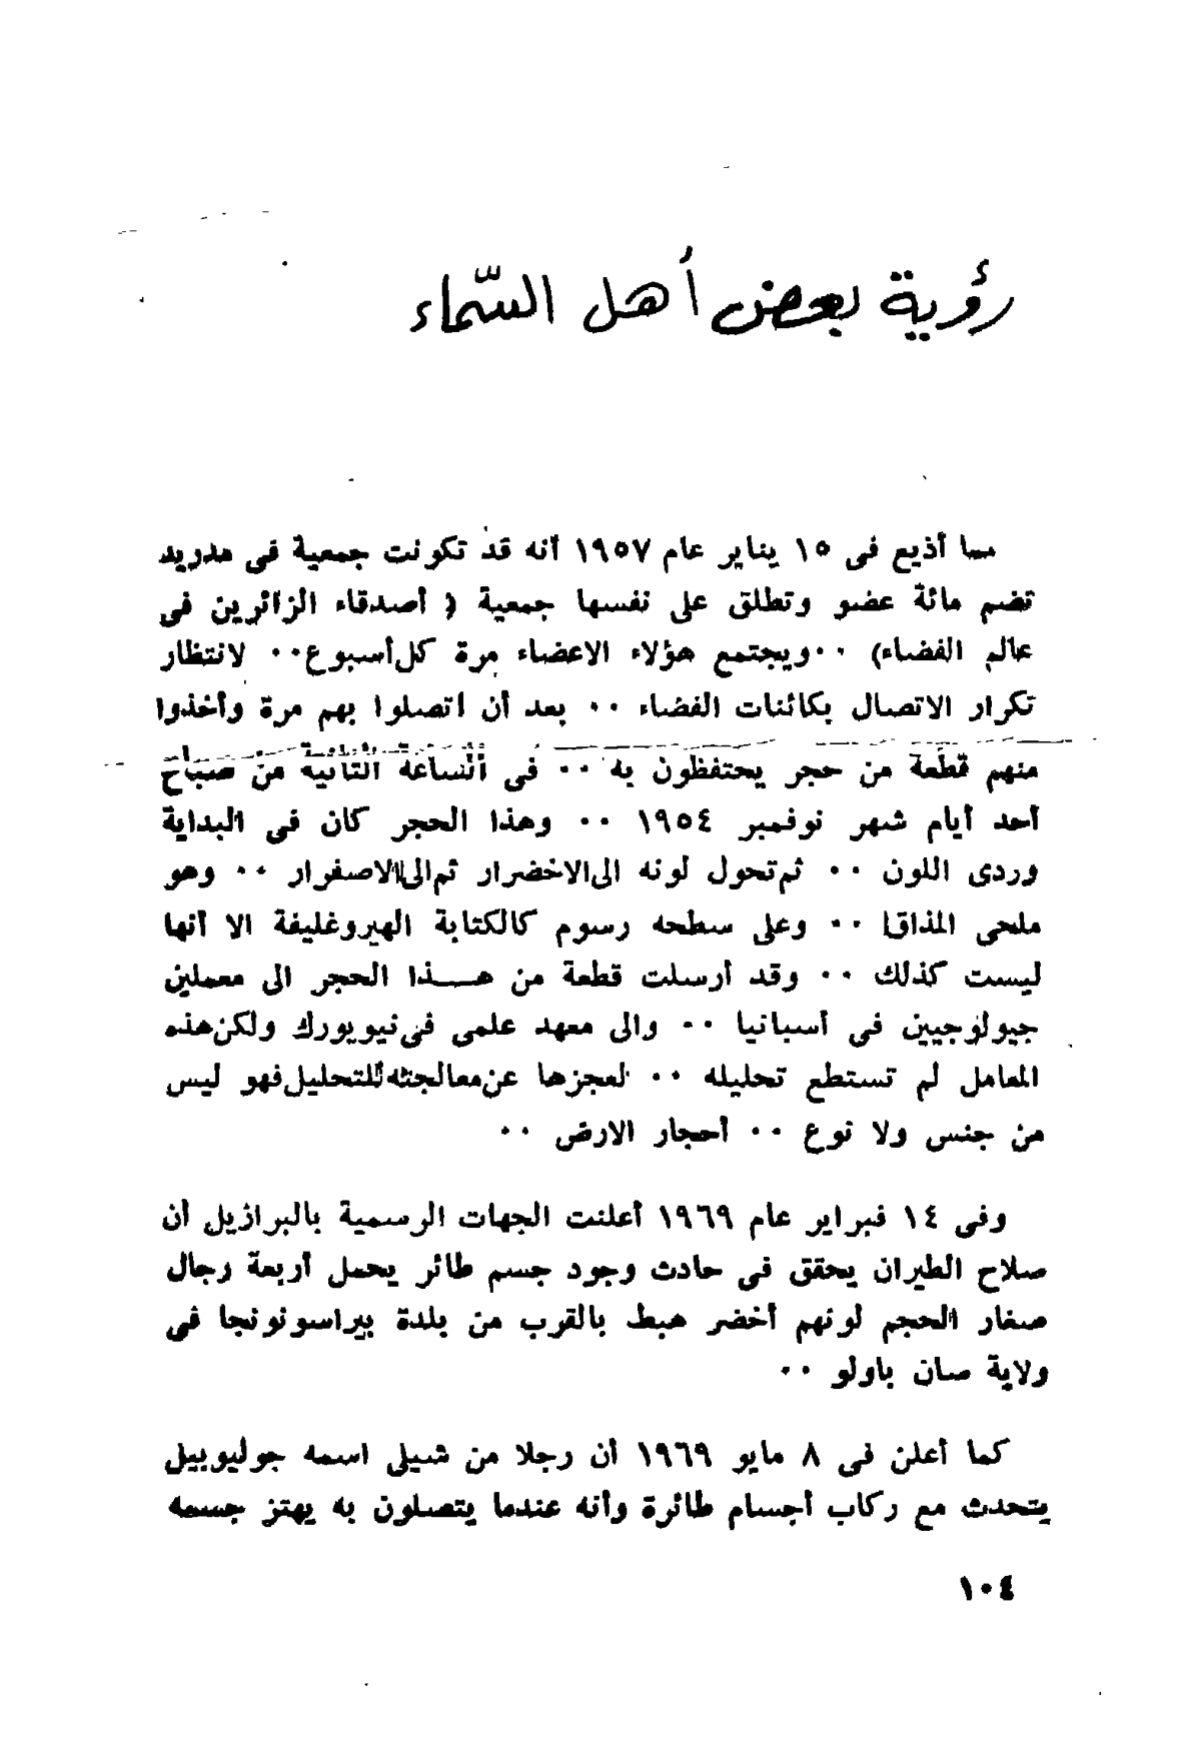 رؤية بعض أهل السّماء
مما أذيع فى ١٥ يناير عام ١٩٥٧ أنه قد تكونت جمعية فى مدريد
تضم مائة عضو وتطلق على نفسها جمعية ( أصدقاء الزائرين فى
عالم الفضاء) ٠٠ ويجتمع هؤلاء الاعضاء مرة كل أسبوع ٠٠ لانتظار
تكرار الاتصال بكائنات الفضاء ٠٠ بعد أن اتصلوا بهم مرة وأخذوا
منهم قطعة من حجر يحتفظون به ٠٠ فى الساعة الثانية من صباح
أحد أيام شهر نوفمبر ١٩٥٤ ٠٠ وهذا الحجر كان فى البداية
وردى اللون ٠٠ ثم تحول لونه الى الاخضرار ثم الى الاصفرار ٠٠ وهو
ملحى المذاق ٠٠ وعلى سطحه رسوم كالكتابة الهيروغليفة الا أنها
ليست كذلك ٠٠ وقد أرسلت قطعة من هــذا الحجر الى معملين
جيولوجيين فى أسبانيا ٠٠ والى معهد علمى فى نيويورك ولكن هذه
المعامل لم تستطع تحليله ٠٠ لعجزها عن معالجته للتحليل فهو ليس
من جنس ولا نوع ٠٠ أحجار الارض ٠٠
وفى ١٤ فبراير عام ١٩٦٩ أعلنت الجهات الرسمية بالبرازيل أن
سلاح الطيران يحقق فى حادث وجود جسم طائر يحمل أربعة رجال
صغار الحجم لونهم أخضر هبط بالقرب من بلدة بيراسونونجا فى
ولاية سان باولو ٠٠
كما أعلن فى ٨ مايو ١٩٦٩ أن رجلا من شيلى اسمه جوليوبيل
يتحدث مع ركاب أجسام طائرة وأنه عندما يتصلون به يهتز جسمه
١٠٤